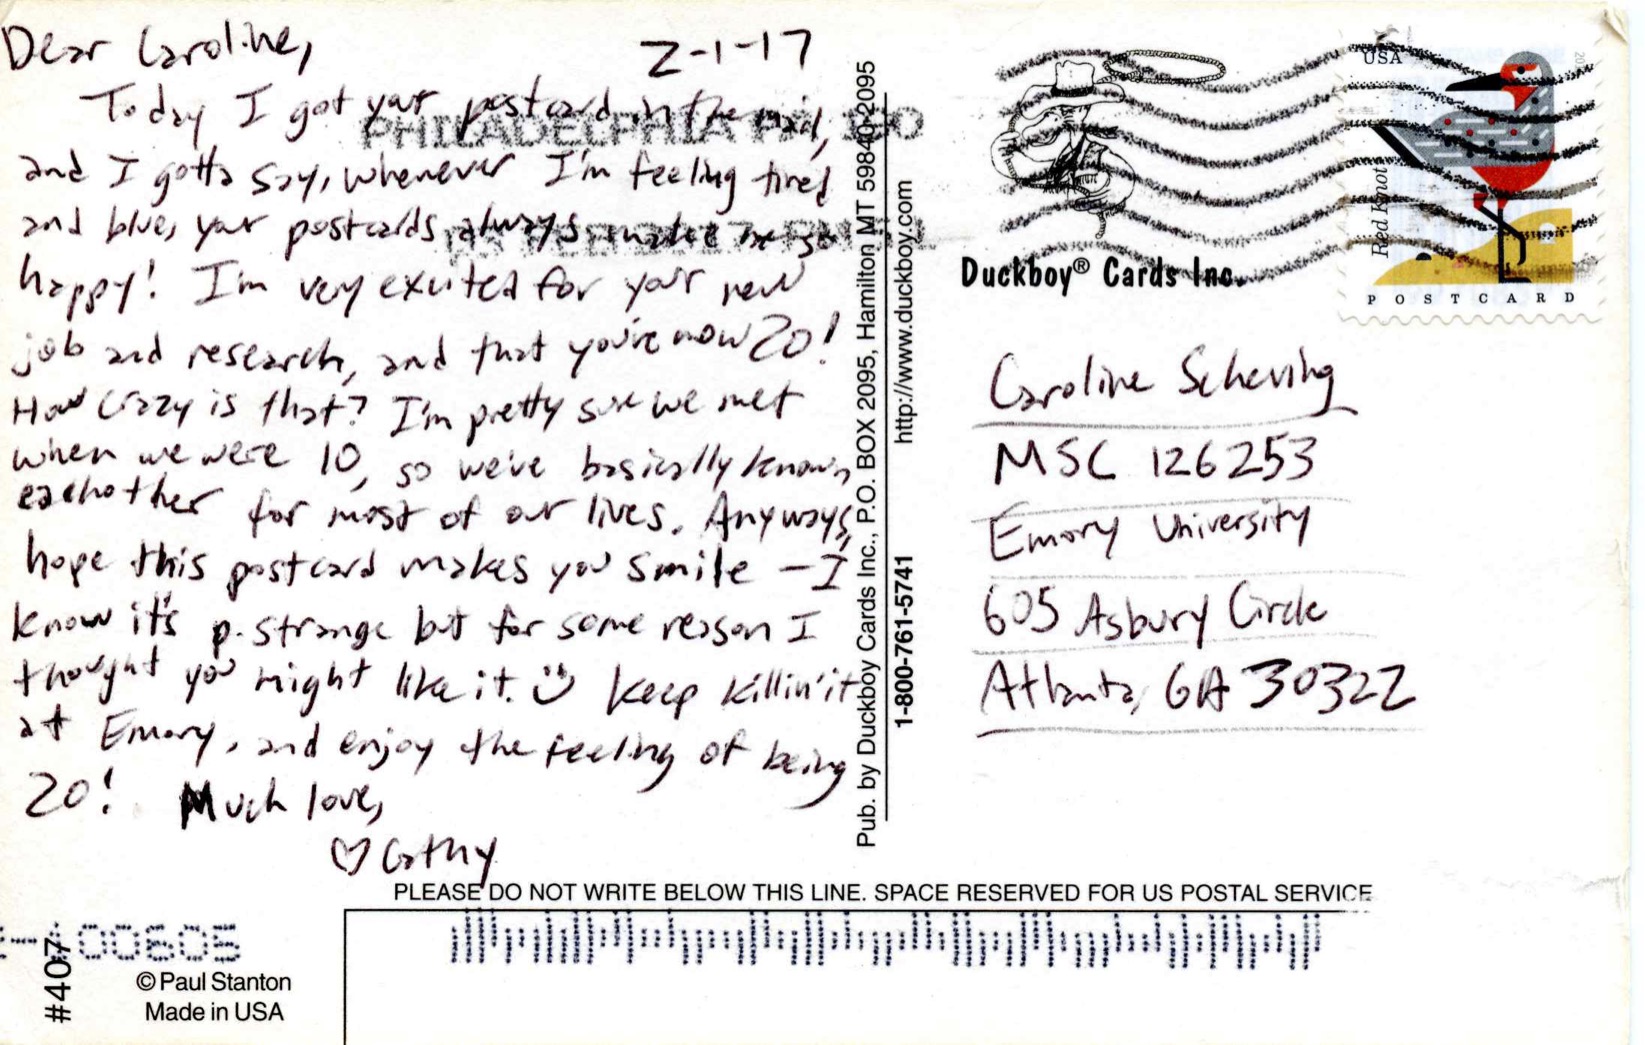 Dear Caroline,
2-1-17
Today I got your postcard in the mail,
and I gotta say, whenever I'm feeling tired
and blue, your postcards always make me so
happy! I'm very excited for your new
job and research, and that you're now 20!
How crazy is that? I'm pretty sure we met
when we were 10, so we've basically known
eachother for most of our lives. Anyways,
hope this postcard makes you smile - I
know it's p. strange but for some reason I
thought you might like it. Keep killin' it
at Emory, and enjoy the feeling of being
20! Much love,
♡ Cathy
PHILADELPHIA PA
Pub. by Duckboy Cards Inc., P.O. BOX 2095, Hamilton MT 59840-2095
1-800-761-5741 http://www.duckboy.com
Duckboy® Cards Inc.
USA
Red Knot
POSTCARD
Caroline Scheving
MSC 126253
Emory University
605 Asbury Circle
Atlanta, GA 30322
PLEASE DO NOT WRITE BELOW THIS LINE. SPACE RESERVED FOR US POSTAL SERVICE
00605
#407
© Paul Stanton
Made in USA